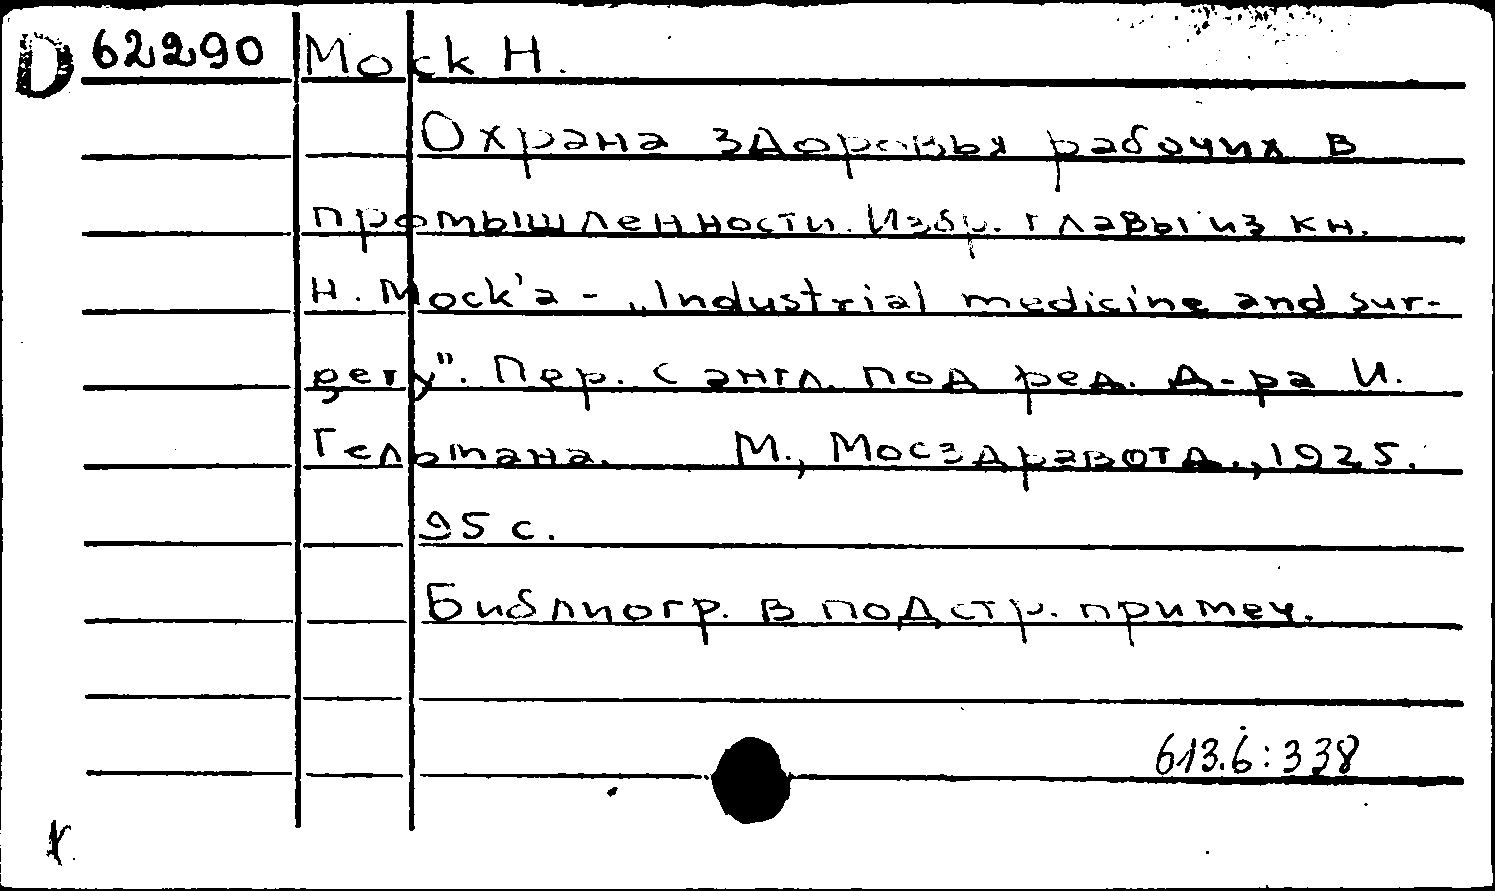 D 62290 Mock H.
Охрана здоровья рабочих в
промышленности. Избр. главы из кн.
H. Mock'a - „Industrial medicine and sur-
gery". Пер. с англ. под ред. д-ра И.
Гельмана. М., Мосздравотд., 1925.
95 с.
Библиогр. в подстр. примеч.
613.6:338